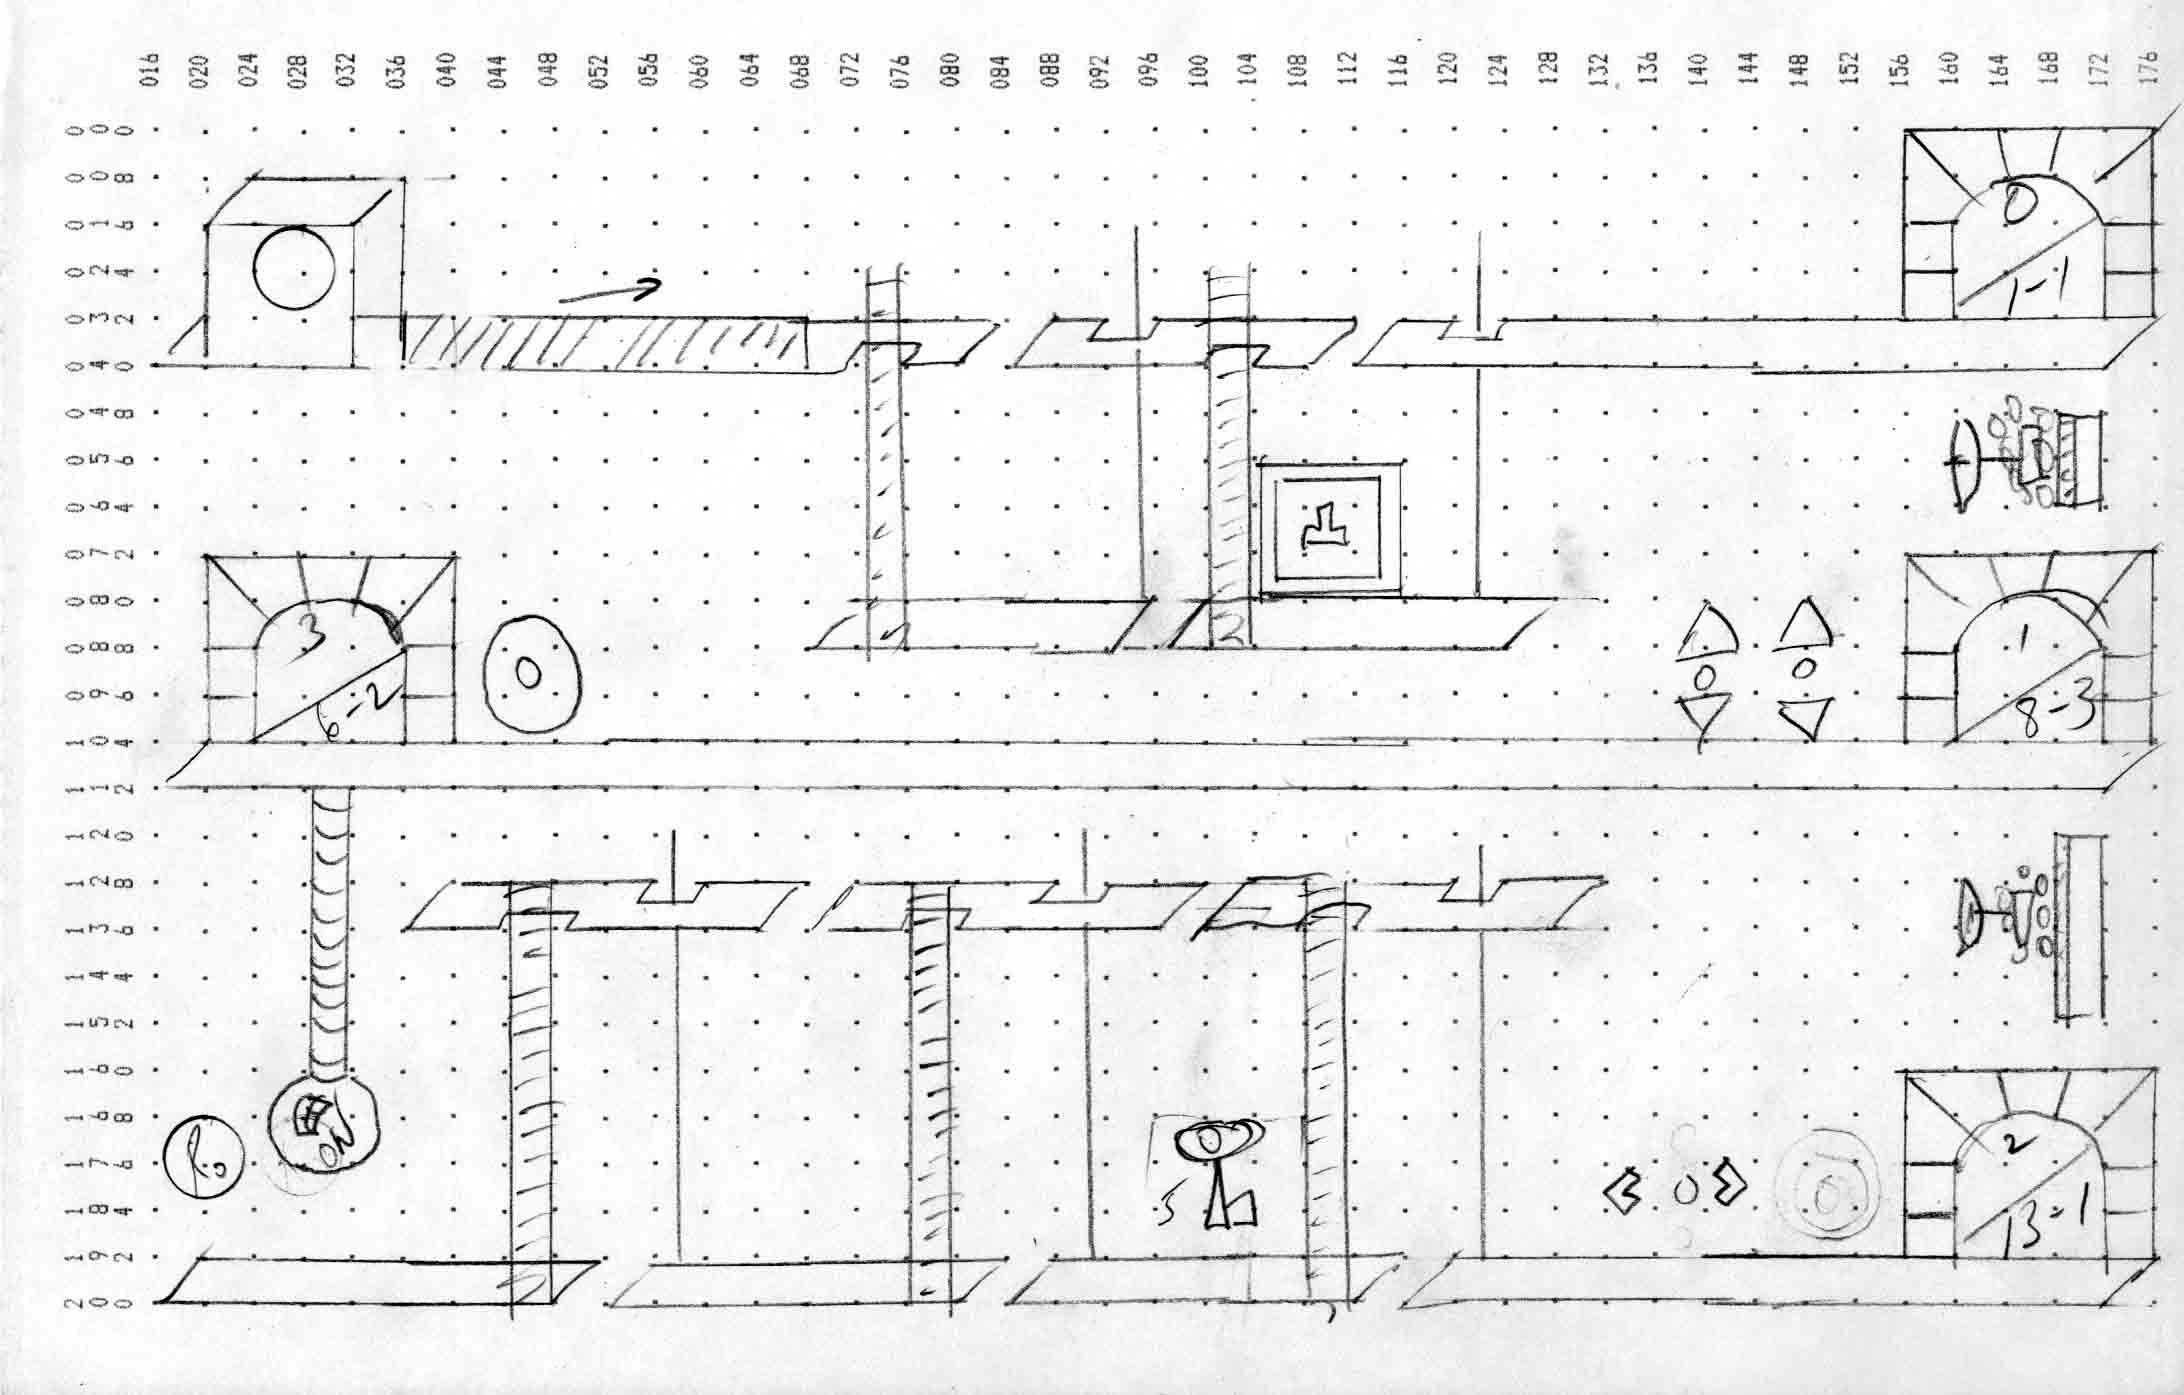 016 020 024 028 032 036 040 044 048 052 056 060 064 068 072 076 080 084 088 092 096 100 104 108 112 116 120 124 128 132 136 140 144 148 152 156 160 164 168 172 176
000
008
016
024
032
040
048
056
064
072
080
088
096
104
112
120
128
136
144
152
160
168
176
184
192
200
0
1-1
2
3
6-2
1
8-3
ON
5
2
13-1